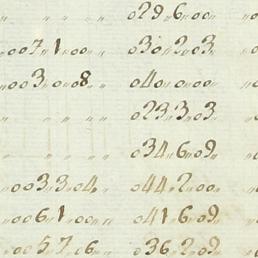 " " " " 029"6"00"
"007"1"00" " 030"2"03
"003"0"08 " 040"0"00 "
" " " " 023"3"03
" " " " 034"6"09
"003"3"04 " 044"2"00
"006"1"00" " 041"6"09
"005"7"06 " 036"2"09